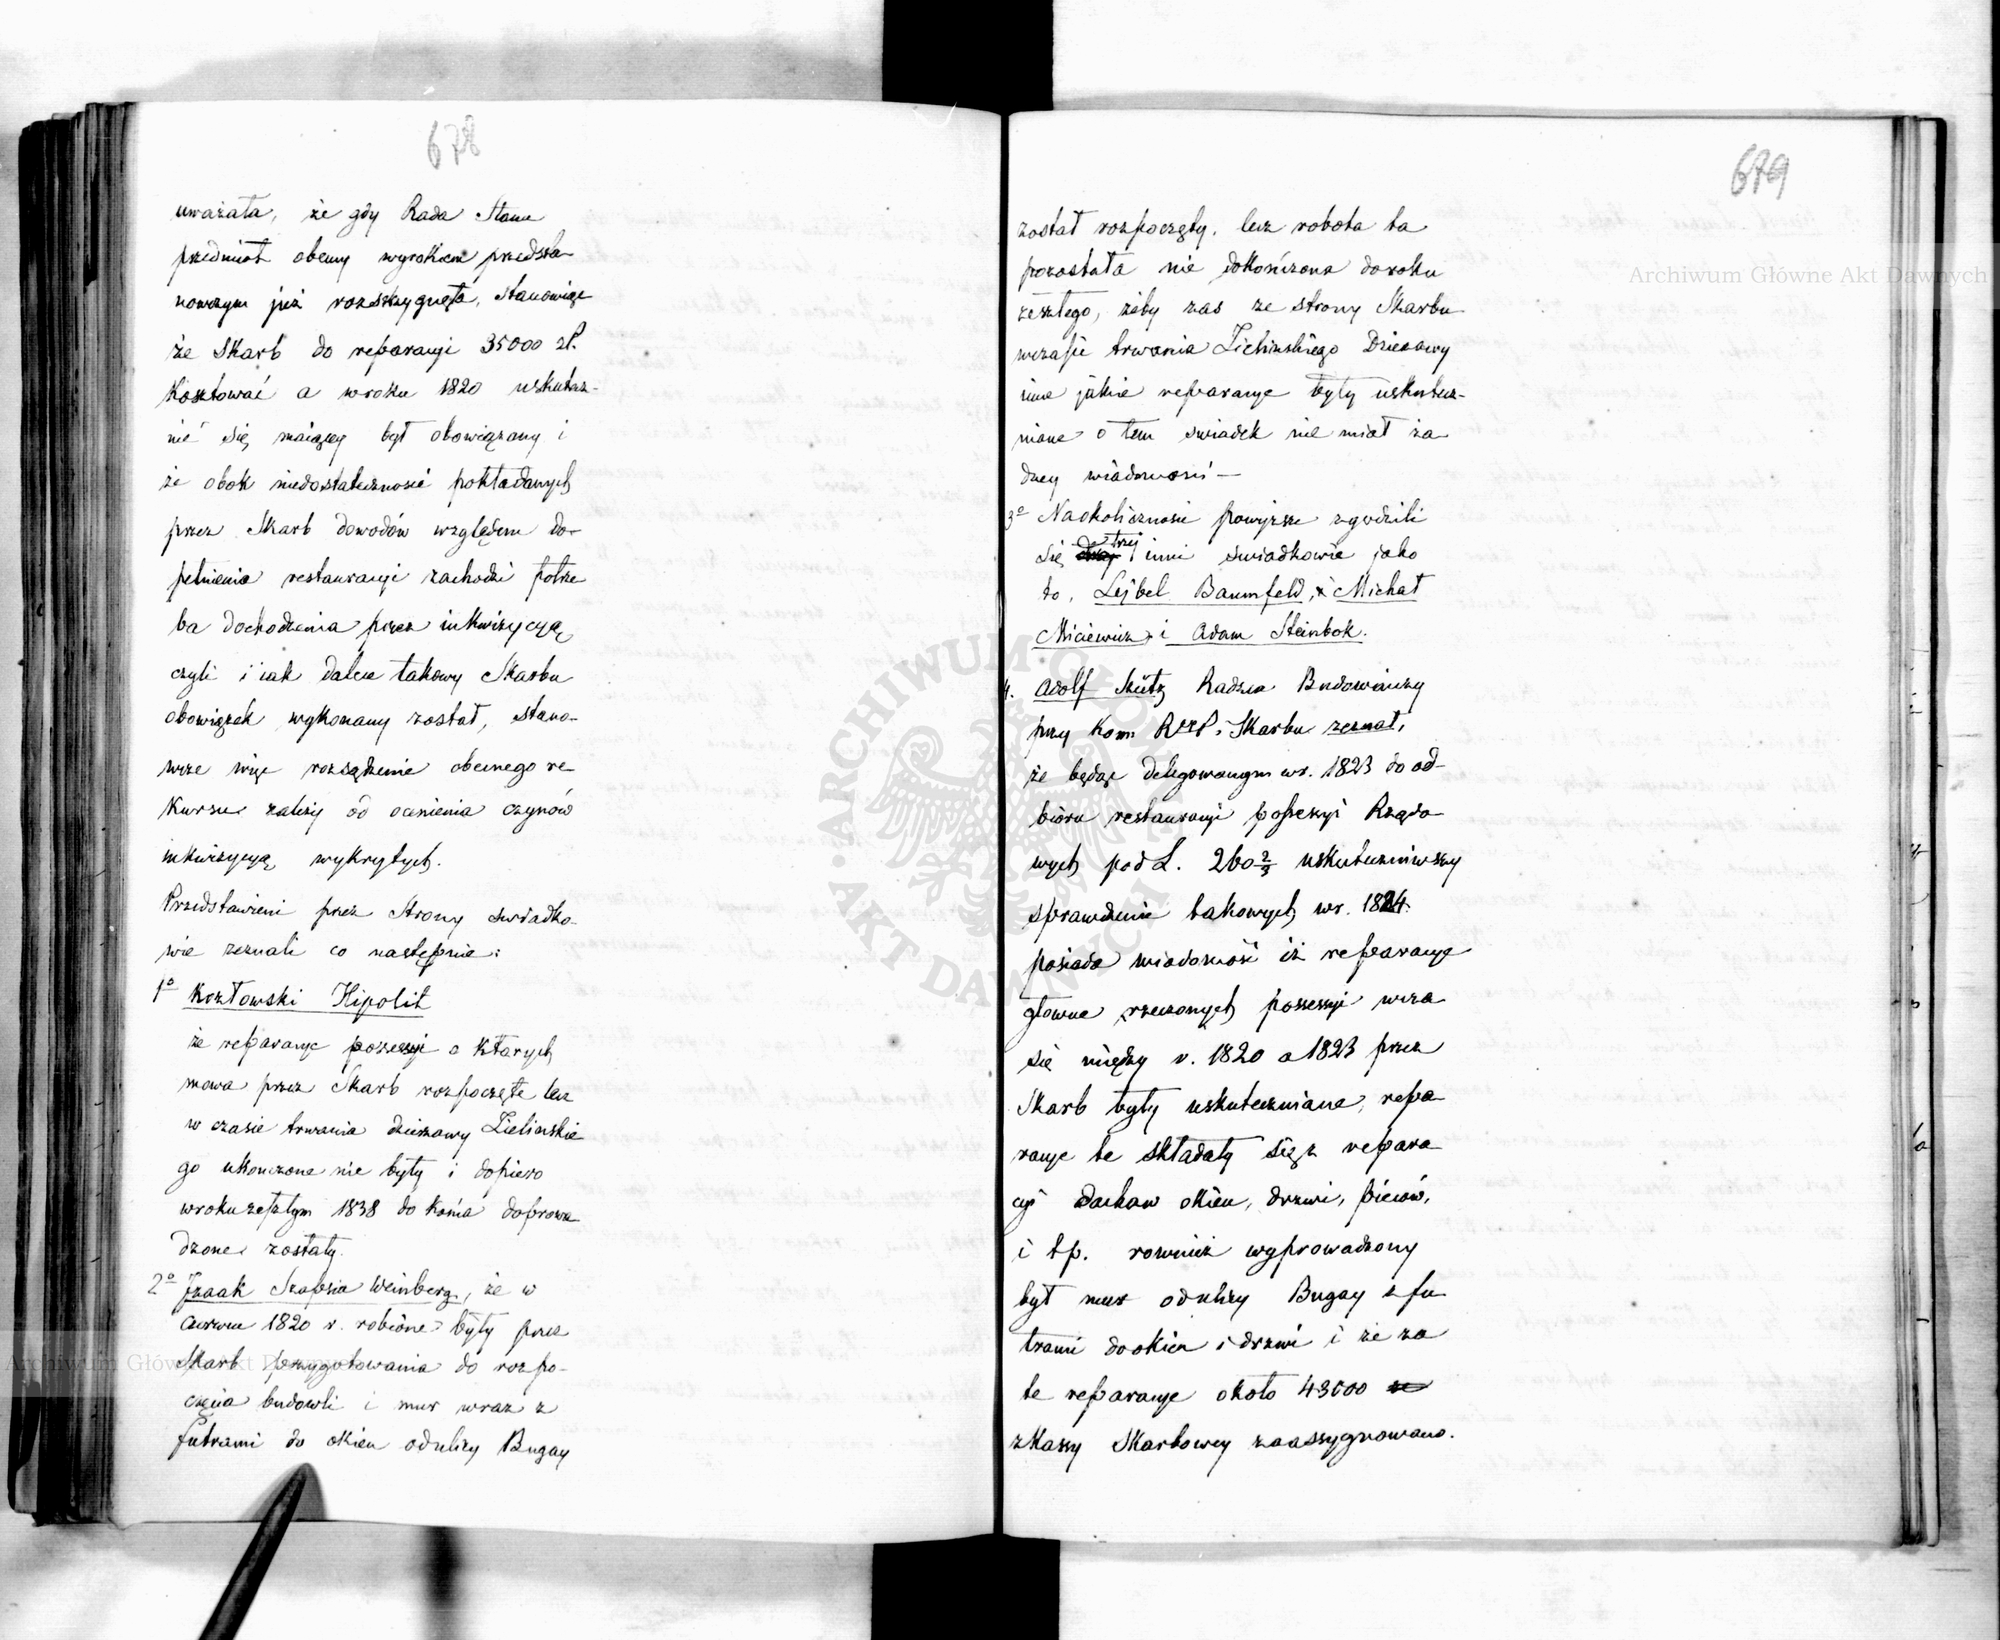 678
uważała, że gdy Rada Stanu
przedmiot obecny wyrokiem przedsta
nowczym już rozstrzygnęła, stanowiąc
że Skarb do reparacyi 35000 zł.
Kosztować a w roku 1820 uskutecz-
nić się maiącey był obowiązany i
że obok niedostateczności pokładanych
przez Skarb dowodów względem do-
pełnienia restauracyi zachodzi potrze
ba dochodzenia przez inkwizycyą
czyli i iak dalece takowy Skarbu
obowiązek wykonany został, stano-
wcze więc rozsądzenie obecnego re
kursu zależy od ocenienia czynów
inkwizycyą wykrytych.
Przedstawieni przez Strony świadko-
wie zeznali co następnie:
1º Kozłowski Hipolit
że reparacye possesyi o których
mowa przez Skarb rozpoczęte lecz
w czasie trwania dzierżawy Zielińskie
go ukończone nie były i dopiero
w roku zeszłym 1838 do końca doprowa
dzone zostały.
2º Izaak Szapsia Weinberg, że w
czerwcu 1820 r. robione były przez
Skarb przygotowania do rozpo-
częcia budowli i mur wraz z
futrami do okien od ulicy Bugay
679
został rozpoczęty, lecz robota ta
pozostała nie dokończona do roku
zeszłego, żeby zas ze strony Skarbu
w czasie trwania Zielińskiego Dzierżawy
inne jakie reparacye były uskutecz-
niane o tem swiadek nie miał ża
dney wiadomości —
3º Na okoliczności powyższe zgodzili
się trzej inni swiadkowie jako
to, Lejbel Baumfeld, i Michał
Miciewicz i Adam Steinbok.
4. Adolf Szütz Radzca Budowniczy
przy Kom RzzP. i Skarbu zeznał,
że będąc delegowanym w r. 1823 do od-
bioru restauracyi possesyi Rządo
wych pod L. 260 2/3 uskuteczniwszy
sprawdzenie takowych w r. 1824.
posiada wiadomość iż reparacye
główne rzeczonych possessyi w cza
sie między r. 1820 a 1823 przez
Skarb były uskuteczniane, repa
racye te składały się z repara
cyi dachów okien, drzwi, pieców,
i t p. rownież wyprowadzony
był mur od ulicy Bugay z fu
trami do okien i drzwi i że za
te reparacye około 43000
z Kassy Skarbowey zaassygnowano.
Archiwum Główne Akt Dawnych
Archiwum Główne Akt Dawnych
ARCHIWUM GŁÓWNE AKT DAWNYCH